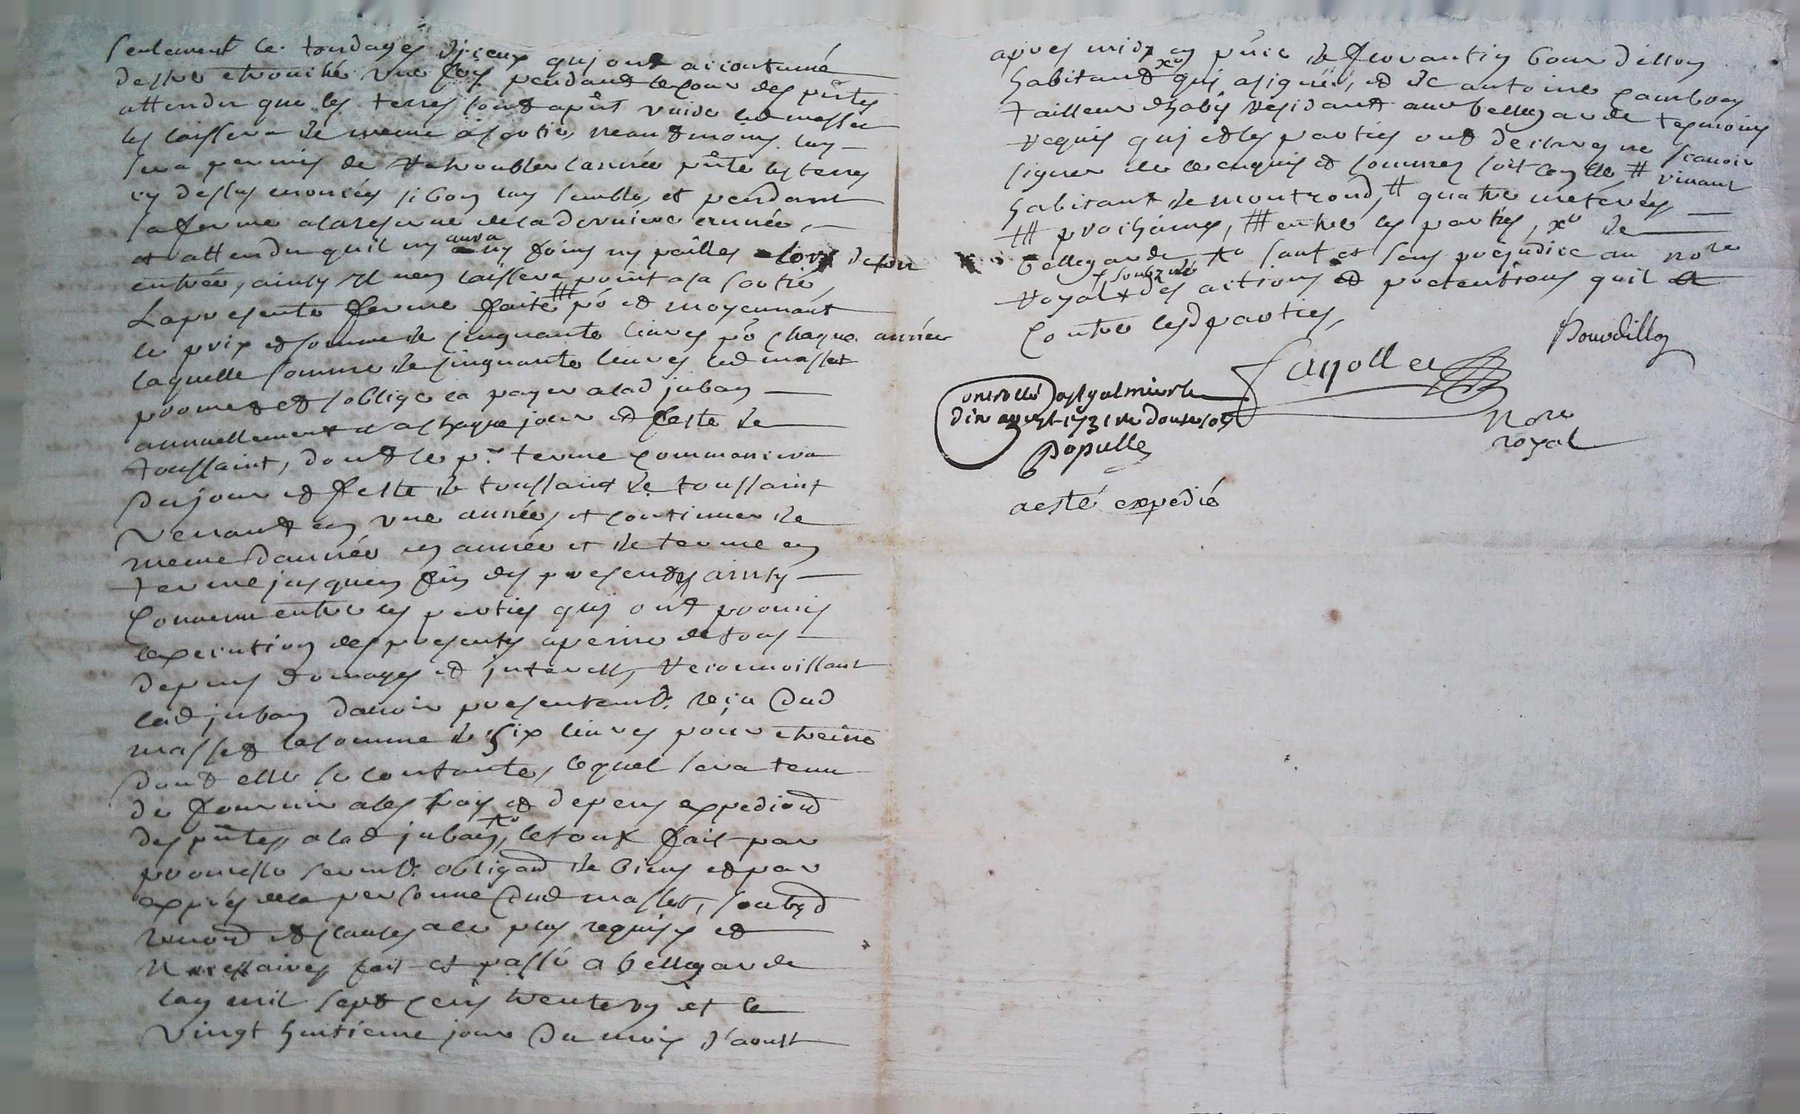 seulement le tondages diceux qui ont accoutumé
destre etronché une fois pendant le cour des pntes
attendu que les terres sont apnt vuide led masset
les laissera de meme a sa sortie neantmoins luy
sera permis de retroubler lannée pnte les terres
cy dessus enoncées si bon luy semble, et pendant
la ferme a la reserve de la derniere année,
et attendu quil ny aura ny foins ny pailles lors de son
entrée, ainsy il nen laissera point a sa sortie,
La presente ferme faite # po et moyennant
le prix et somme de cinquante livres po chaque année
laquelle somme de cinquante livres led masset
promet et soblige la payer a lad juban
annuellement et a chaque jour et feste de
toussaint, dont le pr terme commancera
du jour et feste de toussaint de toussaint
venant en une année, et continuer de
meme dannée en année et de terme en
terme jusquen fin des presentes ainsy
convenu entre les parties qui ont promis
lexecution des presentes a peine de tous
depens domages et interests, reconnoissant
lad juban davoir presentemt reçu dud
masset la somme de six livres pour etreine
dont elle se contante, lequel sera tenu
de fournir a ses frais et depens expediond
des pntes, a lad juban, xo le tout fait par
promesse sermt obligaod de biens et par
exprés de la personne dud masset, soubzd
renond et clauses a ce plus requises et
necessaires fait et passé a bellegarde
lan mil sept cens trente un et le
vingt huitieme jour du mois d'aoust
apres midy en pnce de florantin bourdillon
habitant xo qui a signé, et de antoine
tailleur dhabis residant aud bellegarde tesmoins
requis qui et les parties ont declaré ne scavoir
signer de ce enquis et sommez soit # vivant
habitant de montrond, # quatre meterées
# prochaines, # entre les parties, xo de
bellegarde xo sauf et sans prejudice au nore
royal soubzné des actions et pretentions quil a
contre lesd parties,
Bourdillon
Fayolle
Nore
royal
controllé a st galmier le
dix aoust 1731 re douze sols
Populle
a esté expedié